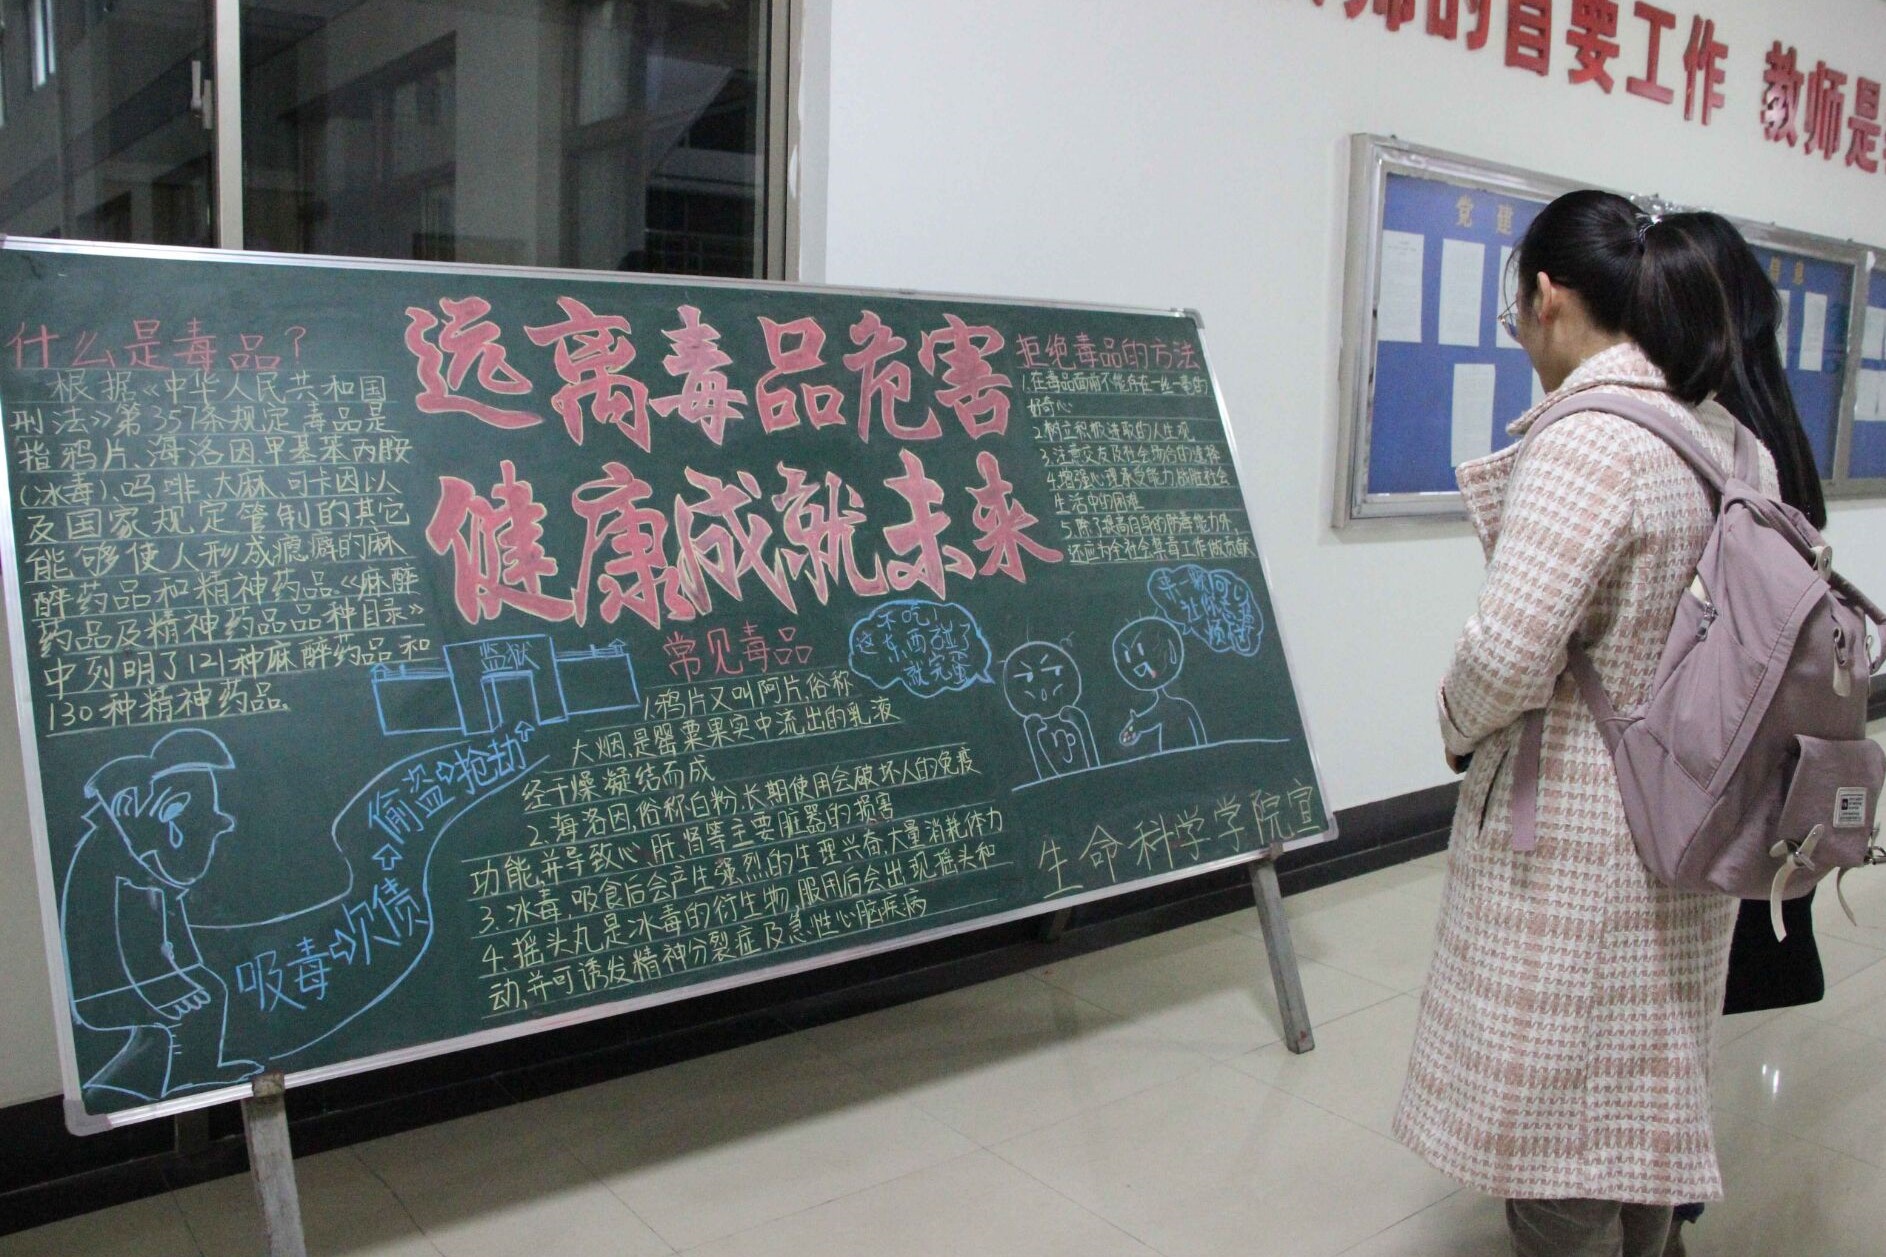 师的首要工作 教师是
党建
什么是毒品?
根据《中华人民共和国
刑法》第357条规定毒品是
指鸦片、海洛因甲基苯丙胺
(冰毒)、吗啡、大麻、可卡因以
及国家规定管制的其它
能够使人形成瘾癖的麻
醉药品和精神药品。《麻醉
药品及精神药品品种目录》
中列明了121种麻醉药品和
130种精神药品。
远离毒品危害
健康成就未来
拒绝毒品的方法
1.在毒品面前不能存在一丝一毫的
好奇心
2.树立积极进取的人生观
3.注意交友及社会场合的选择
4.增强心理承受能力,战胜社会
生活中的困难
5.除了提高自身的防毒能力外,
还应为全社会禁毒工作做贡献
监狱
偷盗⇨抢劫
吸毒⇨欠债
常见毒品
1.鸦片又叫阿片,俗称
大烟,是罂粟果实中流出的乳液
经干燥凝结而成
2.海洛因,俗称白粉,长期使用会破坏人的免疫
功能,并导致心、肝、肾等主要脏器的损害
3.冰毒,吸食后会产生强烈的生理兴奋,大量消耗体力
4.摇头丸是冰毒的衍生物,服用后会出现摇头和
动,并可诱发精神分裂症及急性心脑疾病
不吃!
这东西碰了
就完蛋
来一颗
生命科学学院宣